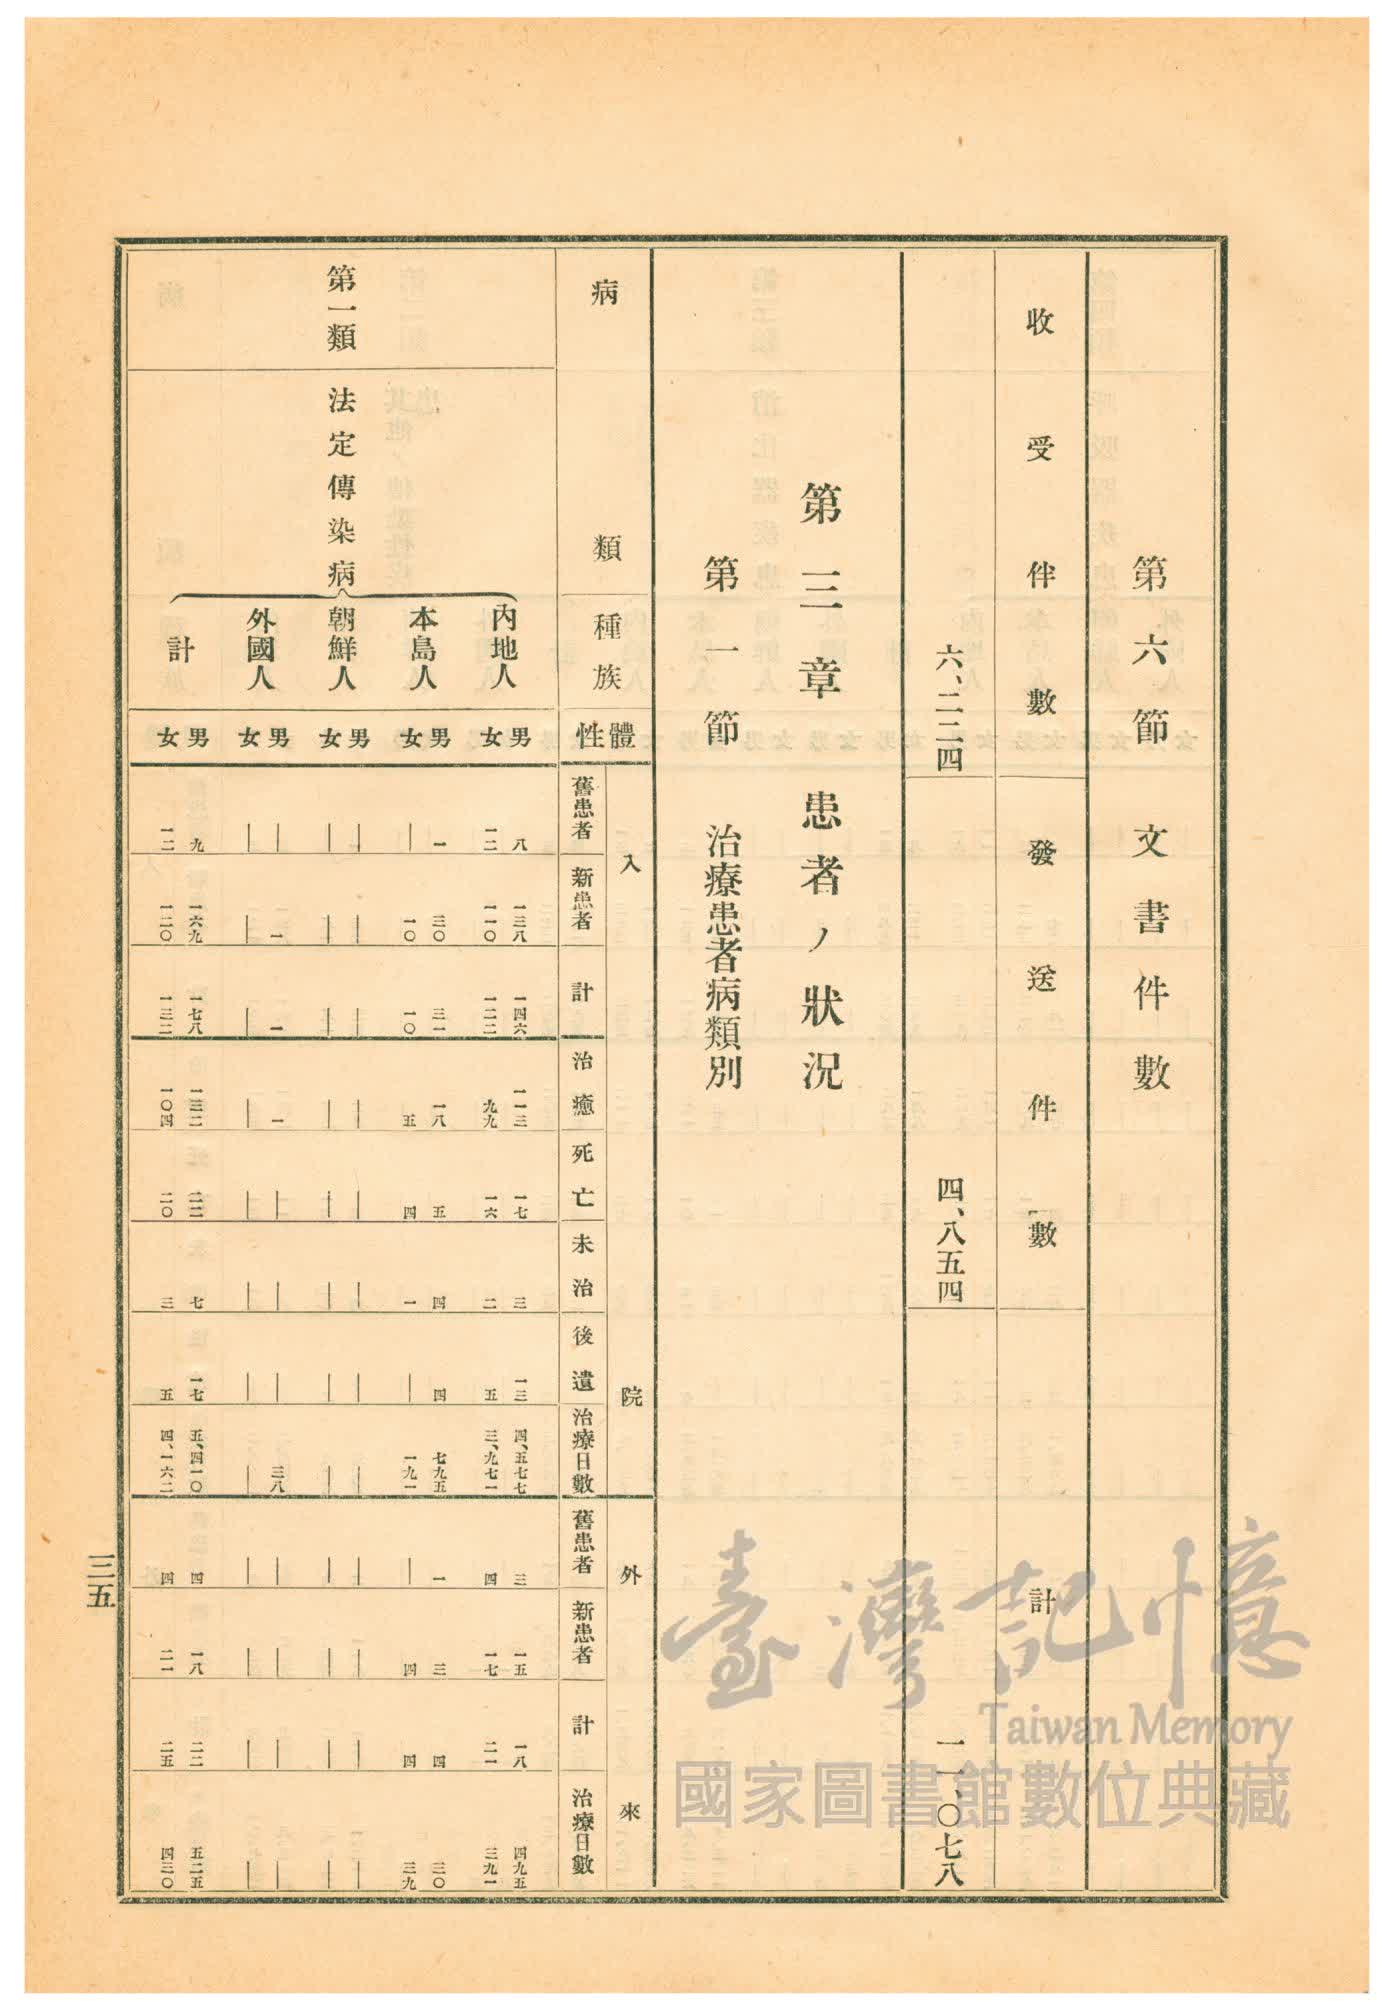 第六節　文書件數
收受件數　發送件數　計
六、二二四　四、八五四　一一、〇七八
第三章　患者ノ狀況
第一節　治療患者病類別
病類　種族　體性
入院　外來
舊患者　新患者　計　治癒　死亡　未治　後遺　治療日數　舊患者　新患者　計　治療日數
第一類　法定傳染病
內地人　男　八　一三八　一四六　一一三　一七　三　一三　四、五七七　三　一五　一八　四九五
女　一二　一一〇　一二二　九九　一六　二　五　三、九七一　四　一七　二一　三九一
本島人　男　一　三〇　三一　一八　五　四　四　七九五　一　三　四　三〇
女　｜　一〇　一〇　五　四　一　｜　一九一　｜　四　四　三九
朝鮮人　男　｜　｜　｜　｜　｜　｜　｜　｜　｜　｜　｜　｜
女　｜　｜　｜　｜　｜　｜　｜　｜　｜　｜　｜　｜
外國人　男　｜　一　一　一　｜　｜　｜　三八　｜　｜　｜　｜
女　｜　｜　｜　｜　｜　｜　｜　｜　｜　｜　｜　｜
計　男　九　一六九　一七八　一三二　二二　七　一七　五、四一〇　四　一八　二二　五二五
女　一二　一二〇　一三二　一〇四　二〇　三　五　四、一六二　四　二一　二五　四三〇
三五
臺灣記憶
Taiwan Memory
國家圖書館數位典藏